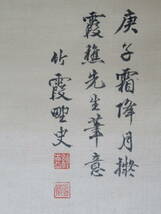 庚子霜降月擬
霞樵先生筆意
竹霞畊史